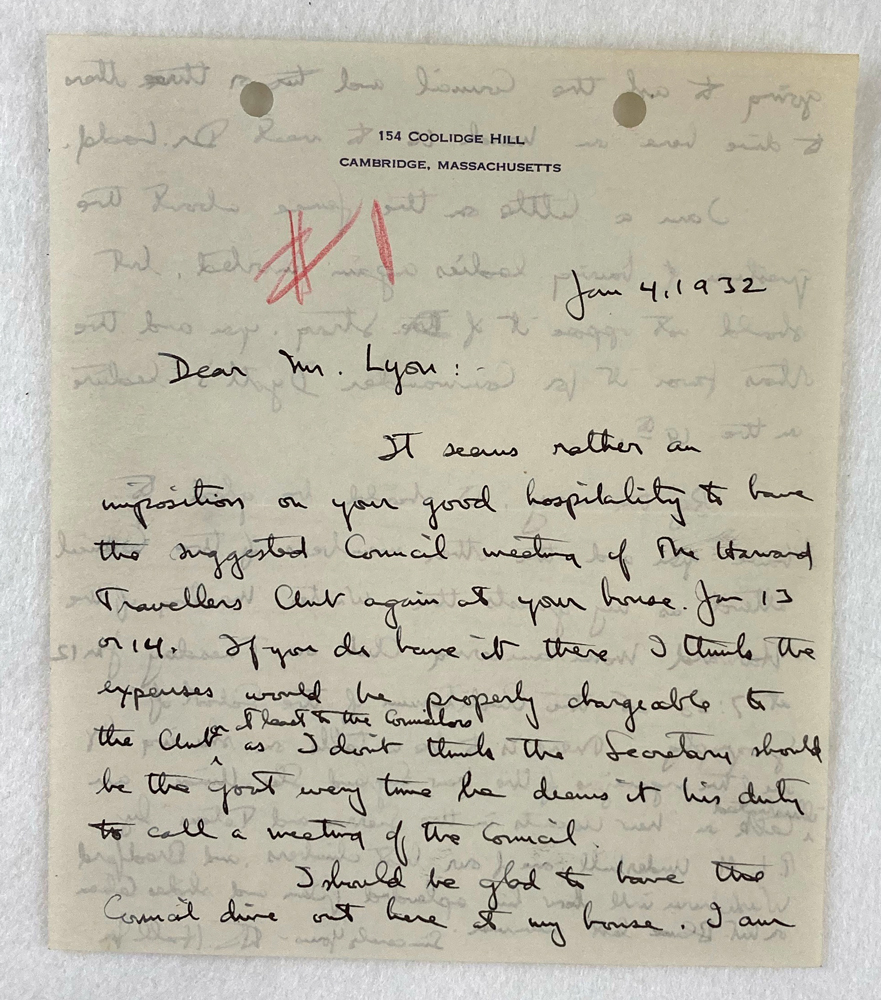 154 COOLIDGE HILL
CAMBRIDGE, MASSACHUSETTS
#1
Jan 4, 1932
Dear Mr. Lyon:-
It seems rather an
imposition on your good hospitality to have
the suggested Council meeting of The Harvard
Travellers Club again at your house. Jan 13
or 14. If you do have it there I think the
expenses would be properly chargeable to
or at least to the Councilors
the Club ^ as I don't think the Secretary should
be the goat every time he deems it his duty
to call a meeting of the Council.
I should be glad to have the
Council dine out here at my house. I am